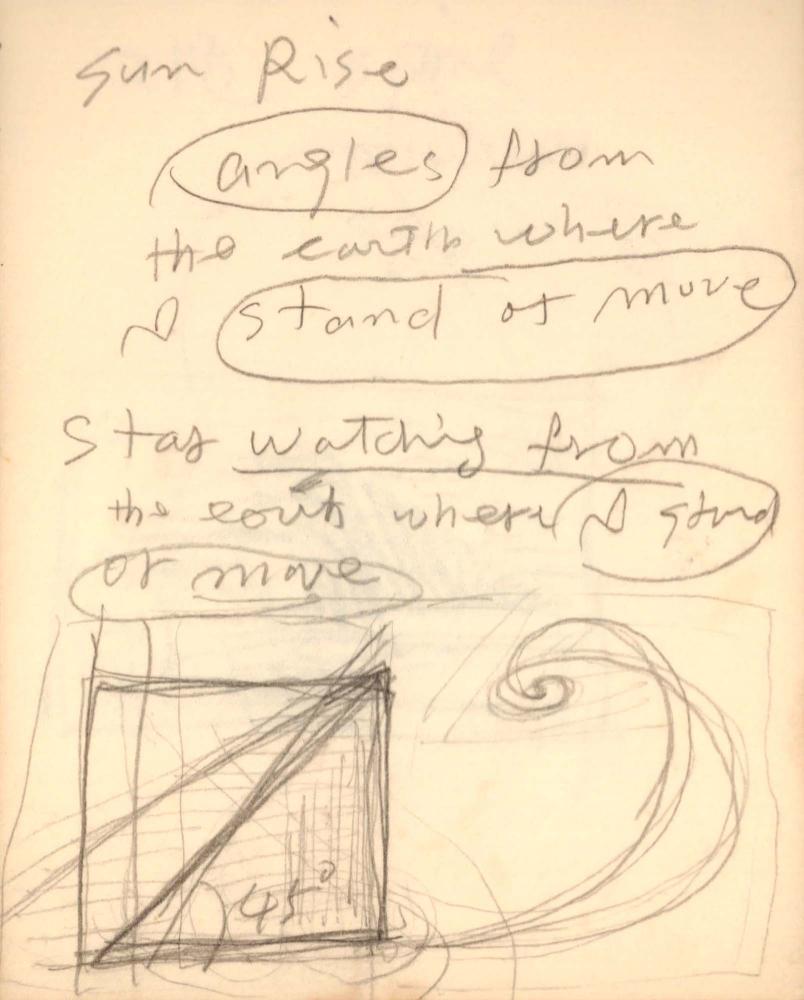 Sun Rise
angles from
the earth where
I stand or move
Star watching from
the earth where I stand
or move
45°